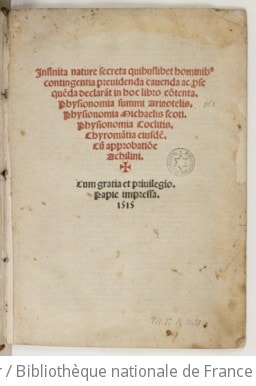 Infinita nature secreta quibuslibet hominibꝰ
contingentia preuidenda cauenda ac ꝓse
quēda declarāt in hoc libro cōtenta.
Physionomia summi Aristotelis.
Physionomia Michaelis scoti.
Physionomia Coclitis.
Chyromātia eiusdē.
Cū approbatiōe
Achilini.
Cum gratia et priuilegio.
Papie impressa.
1515
r / Bibliothèque nationale de France